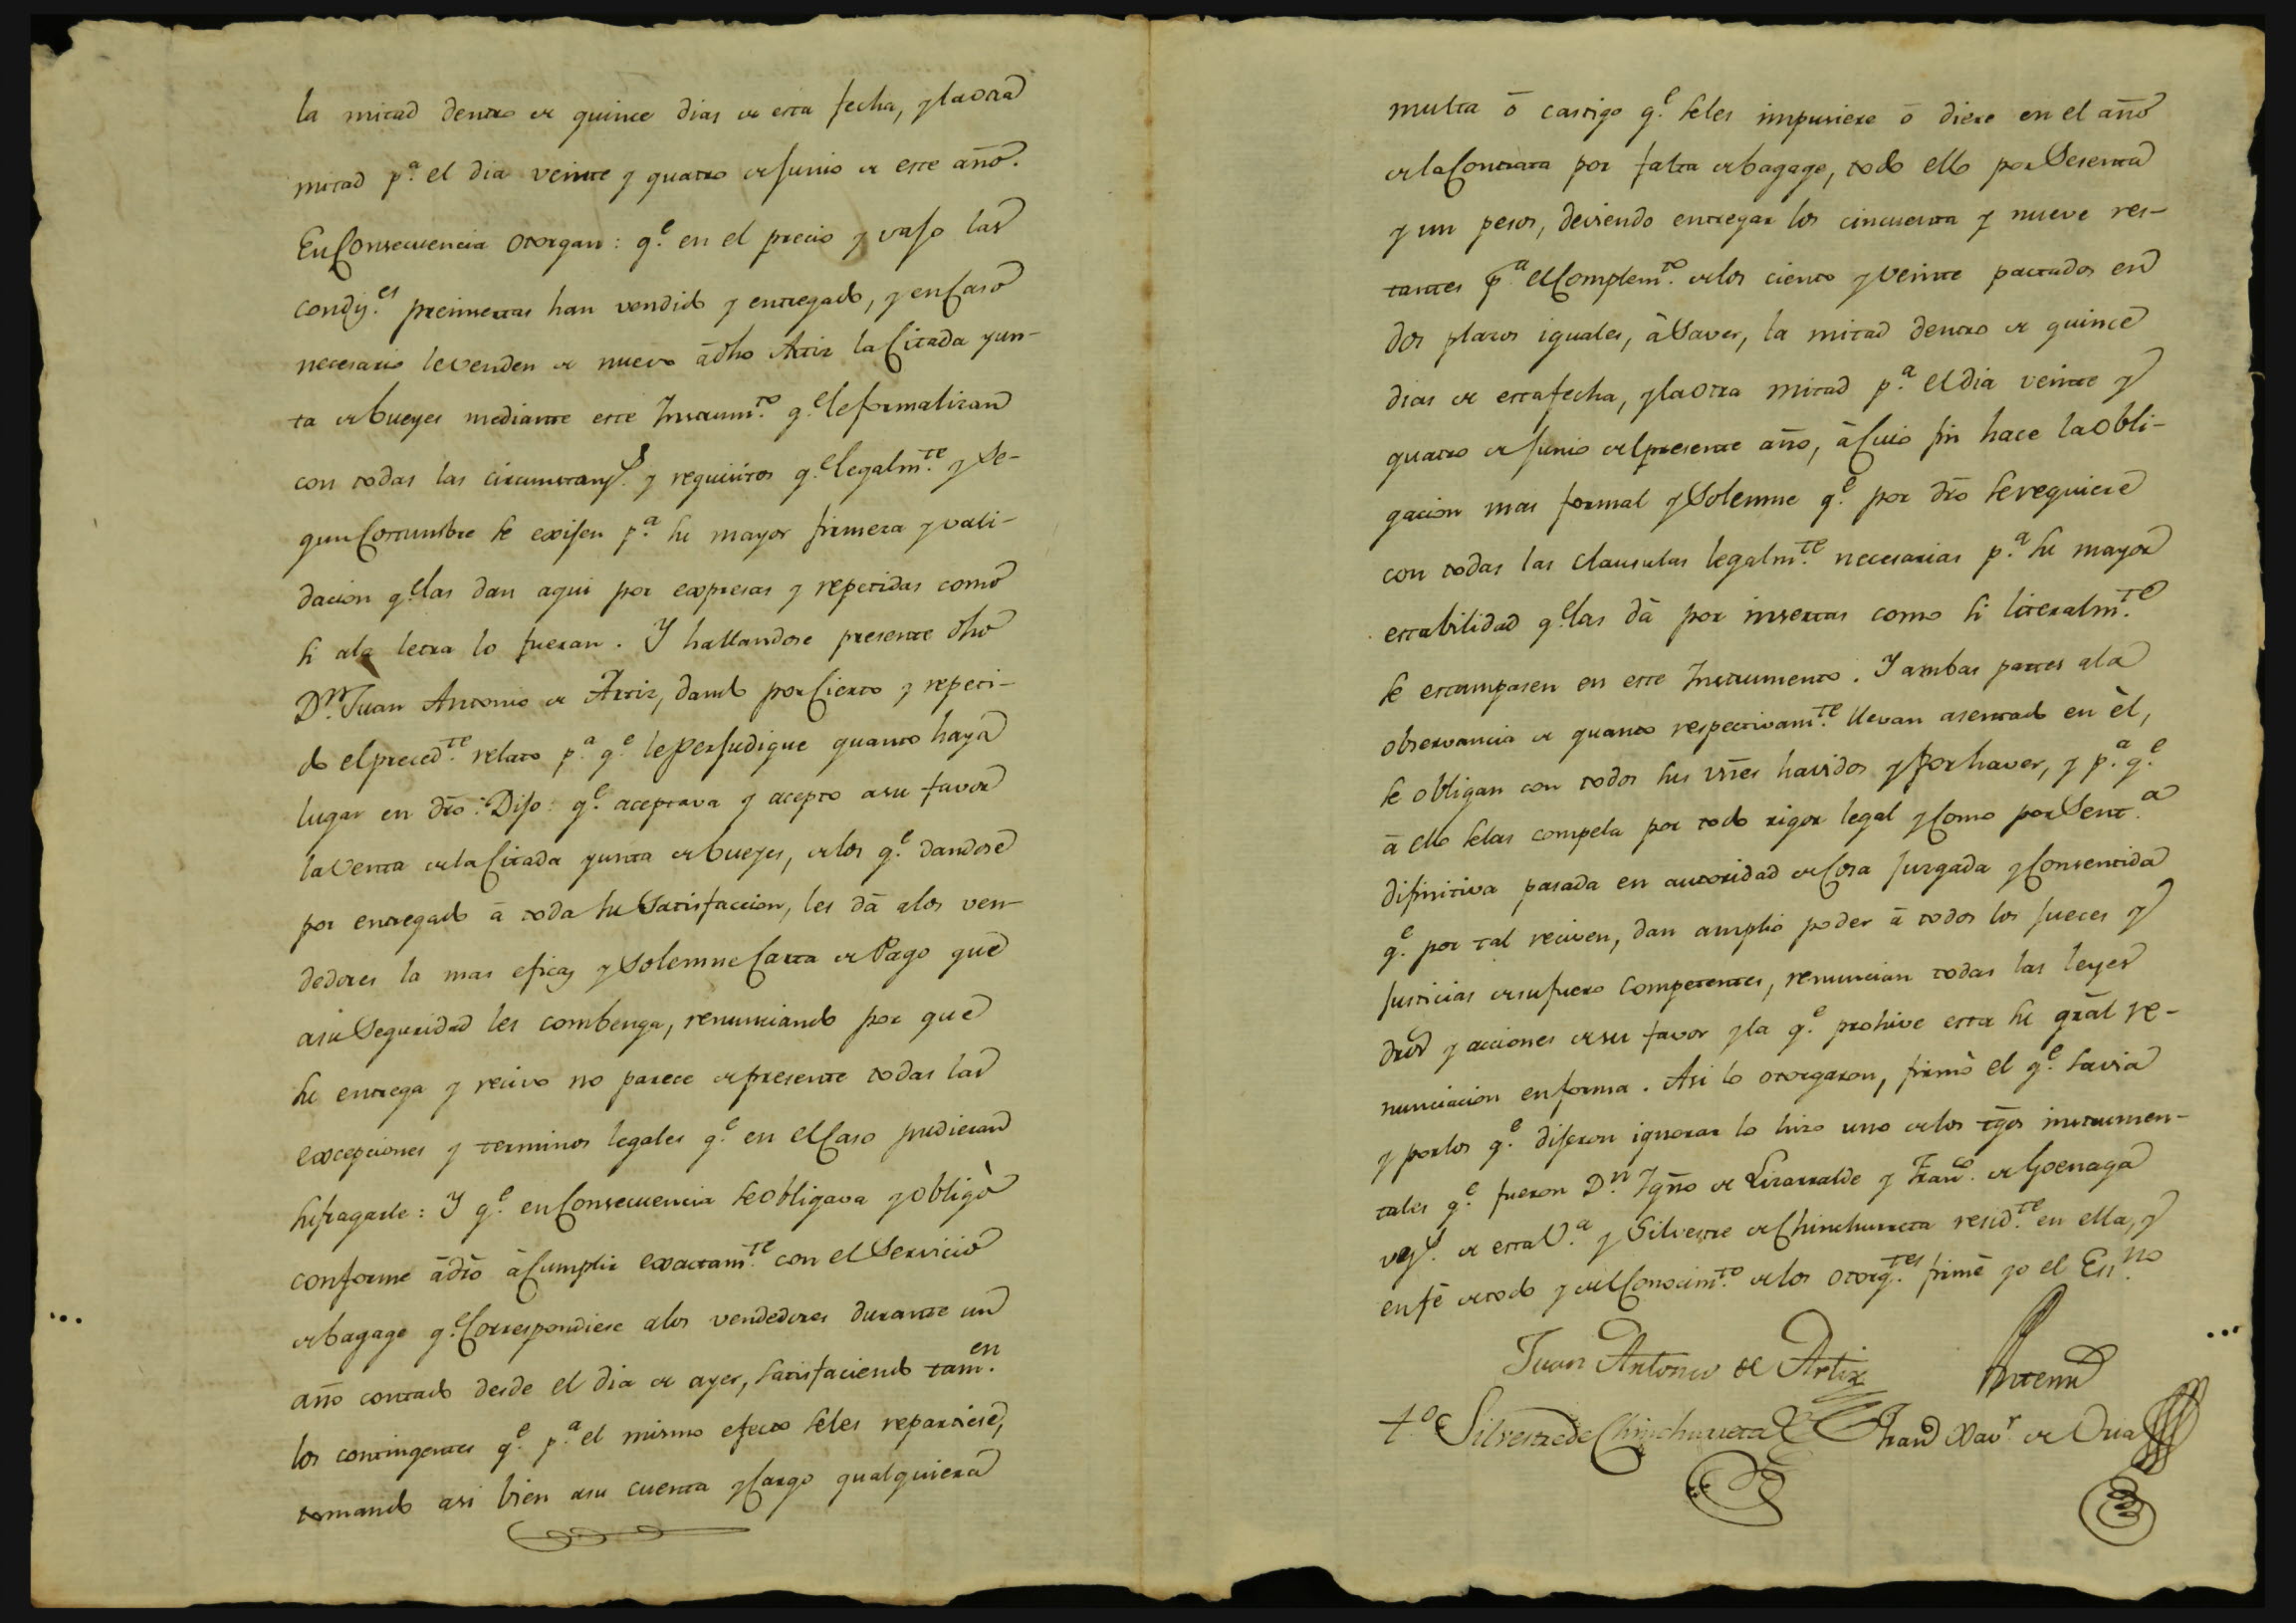 la mitad dentro de quince dias de esta fecha, y la otra
mitad p.ª el dia veinte y quatro de Junio de este año.
En Consecuencia otorgan: q.e en el precio y vajo las
condiz.es preinsertas han vendido y entregado, y en Caso
necesario le venden de nuevo â dho Artiz la Citada yun-
ta de bueyes mediante este Instrum.to q.e le formalizan
con todas las circunstanz.s y requisitos q.e legalm.te y Se-
gun Costumbre se exijen p.ª su mayor firmeza y vali-
dacion q.e las dan aqui por expresas y repetidas como
si ala letra lo fueran. Y hallandose presente dho
D.n Juan Antonio de Artiz, dando por Cierto y repeti-
do el preced.te relato p.ª q.e le perjudique quanto haya
lugar en dro: Dijo: q.e aceptava y acepto a su favor
la Venta de la Citada yunta de bueyes, de los q.e dandose
por entregado â toda su Satisfaccion, les dâ alos ven-
dedores la mas eficaz y Solemne Carta de Pago que
a su Seguridad les combenga, renunciando por que
su entrega y recivo no parece de presente todas las
excepciones y terminos legales q.e en el Caso pudieran
sufragarle: Y q.e en Consecuencia se obligava y obligò
conforme â dro â Cumplir exactam.te con el Servicio
de bagage q.e Correspondiese alos vendedores durante un
año contado desde el dia de ayer, satisfaciendo tam.en
los contingentes q.e p.ª el mismo efecto seles repartiese,
tomando asi bien a su cuenta y Cargo qualquiera
multa ô castigo q.e seles impusiere ô diere en el año
de la Contrata por falta de bagage, todo ello por Sesenta
y un pesos, deviendo entregar los cincuenta y nueve res-
tantes p.ª el Complem.to de los ciento y Veinte pactados en
dos plazos iguales, â Saver, la mitad dentro de quince
dias de esta fecha, y la otra mitad p.ª el dia veinte y
quatro de Junio del presente año, â Cuio fin hace la obli-
gacion mas formal y Solemne q.e por dro se requiere
con todas las clausulas legalm.te necesarias p.ª su mayor
estabilidad q.e las dâ por insertas como si literalm.te
se estampasen en este Instrumento. Y ambas partes ala
observancia de quanto respectivam.te llevan asentado en èl,
se obligan con todos sus vnes havidos y por haver, y p.ª q.e
â ello selas compela por todo rigor legal y Como por Sent.ª
difinitiva pasada en autoridad de Cosa Juzgada y Consentida
q.e por tal reciven, dan amplio poder â todos los Jueces y
Justicias de su fuero competentes, renuncian todas las leyes
dros y acciones de su favor y la q.e prohive esta su gral re-
nunciacion en forma. Asi lo otorgaron, firmò el q.e savia
y por los q.e dijeron ignorar lo hizo uno de los tgos instrumen-
tales q.e fueron D.n Igno de Lizarralde y Fran.co de Goenaga
vez.s de esta V.ª y Silvestre de Chinchurreta resid.te en ella, y
en fê de todo y del Conocim.to de los otorg.tes firmê yo el Es.no
Juan Antonio de Artiz
Antemi
t.o Silvestre de Chinchurreta
Fran Xav.r de